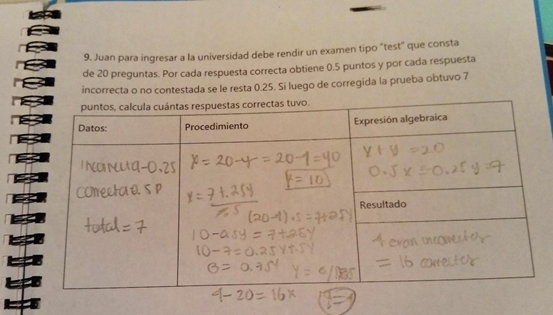 9. Juan para ingresar a la universidad debe rendir un examen tipo "test" que consta
de 20 preguntas. Por cada respuesta correcta obtiene 0.5 puntos y por cada respuesta
incorrecta o no contestada se le resta 0.25. Si luego de corregida la prueba obtuvo 7
puntos, calcula cuántas respuestas correctas tuvo.
Datos:
Procedimiento
Expresión algebraica
Incorrecta-0.25
correcta 0.5 P
total = 7
x = 20-y = 20-
x = 7+.25y
10-0.5y = 7+.25y
10-7=0.25y+.5y
3 = 0.75y
x + y = 20
0.5x - 0.25y=7
Resultado
4 eran incorrectas
= 16 correctas
4-20=16x
y=4